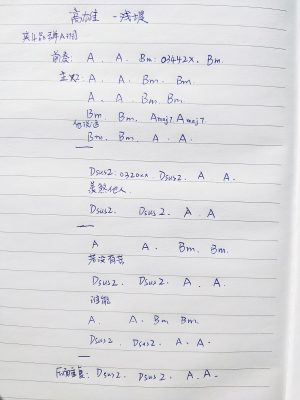 高加佳 - 浅堤
前奏: A . A . Bm: 03442x. Bm.
主歌: A . A . Bm. Bm.
A . A . Bm. Bm.
Bm. Bm. Amaj7. Amaj7.
Bm. Bm. A . A .
Dsus2: 0320xx Dsus2. A A.
羡然他人
Dsus2. Dsus2. A . A
A A. Bm. Bm.
若没有苦
Dsus2. Dsus2. A. A.
谁能
A. . A. Bm Bm.
Dsus2. Dsus2. A. A.
后面重复: Dsus2. Dsus2. A. A.